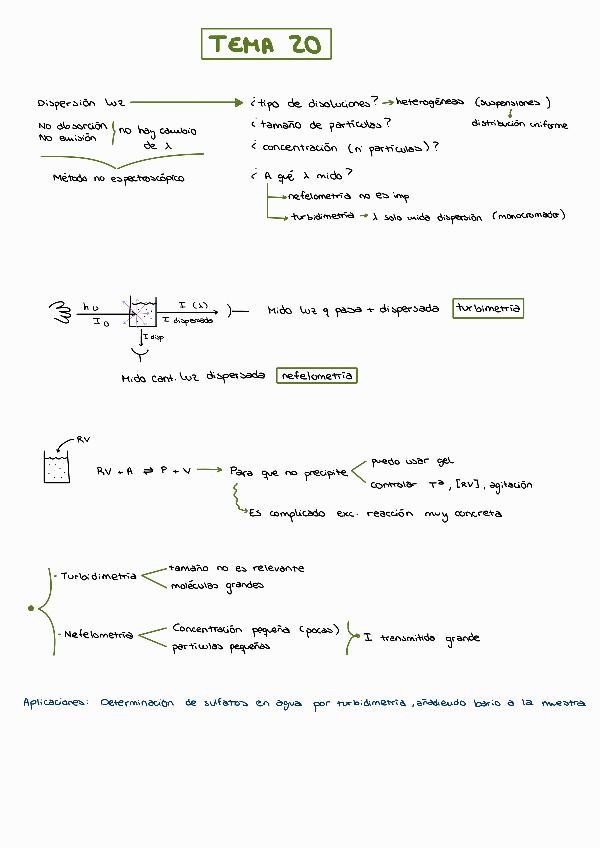 TEMA 20
Dispersión luz → ¿tipo de disoluciones? → heterogéneas (suspensiones)
distribución uniforme
No absorción
No emisión
no hay cambio
de λ
Método no espectroscópico
¿tamaño de partículas?
¿concentración (nº partículas)?
¿A qué λ mido?
nefelometría no es imp
turbidimetría → λ solo mida dispersión (monocromador)
hυ
I0
I (λ)
I dispersada
I disp
Mido luz q pasa + dispersada turbimetría
Mido cant. luz dispersada nefelometría
RV
RV + A ⇌ P + V → Para que no precipite
puedo usar gel
controlar Tª, [RV], agitación
Es complicado exc. reacción muy concreta
- Turbidimetría
tamaño no es relevante
moléculas grandes
- Nefelometría
Concentración pequeña (pocas)
partículas pequeñas
I transmitida grande
Aplicaciones: Determinación de sulfatos en agua por turbidimetría, añadiendo bario a la muestra